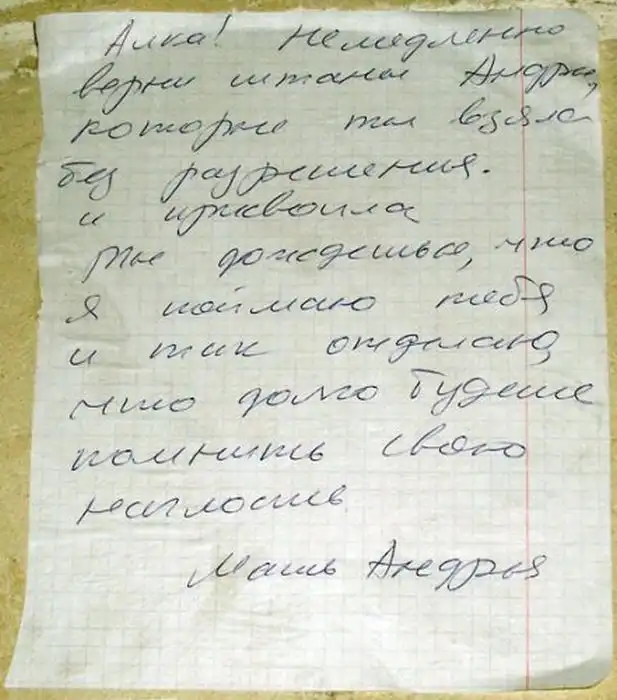 Алка! Немедленно
верни штаны Андрея,
которые ты взяла
без разрешения.
и присвоила
Ты дождешься, что
я поймаю тебя
и так отделаю,
что долго будешь
помнить свою
наглость
Мать Андрея